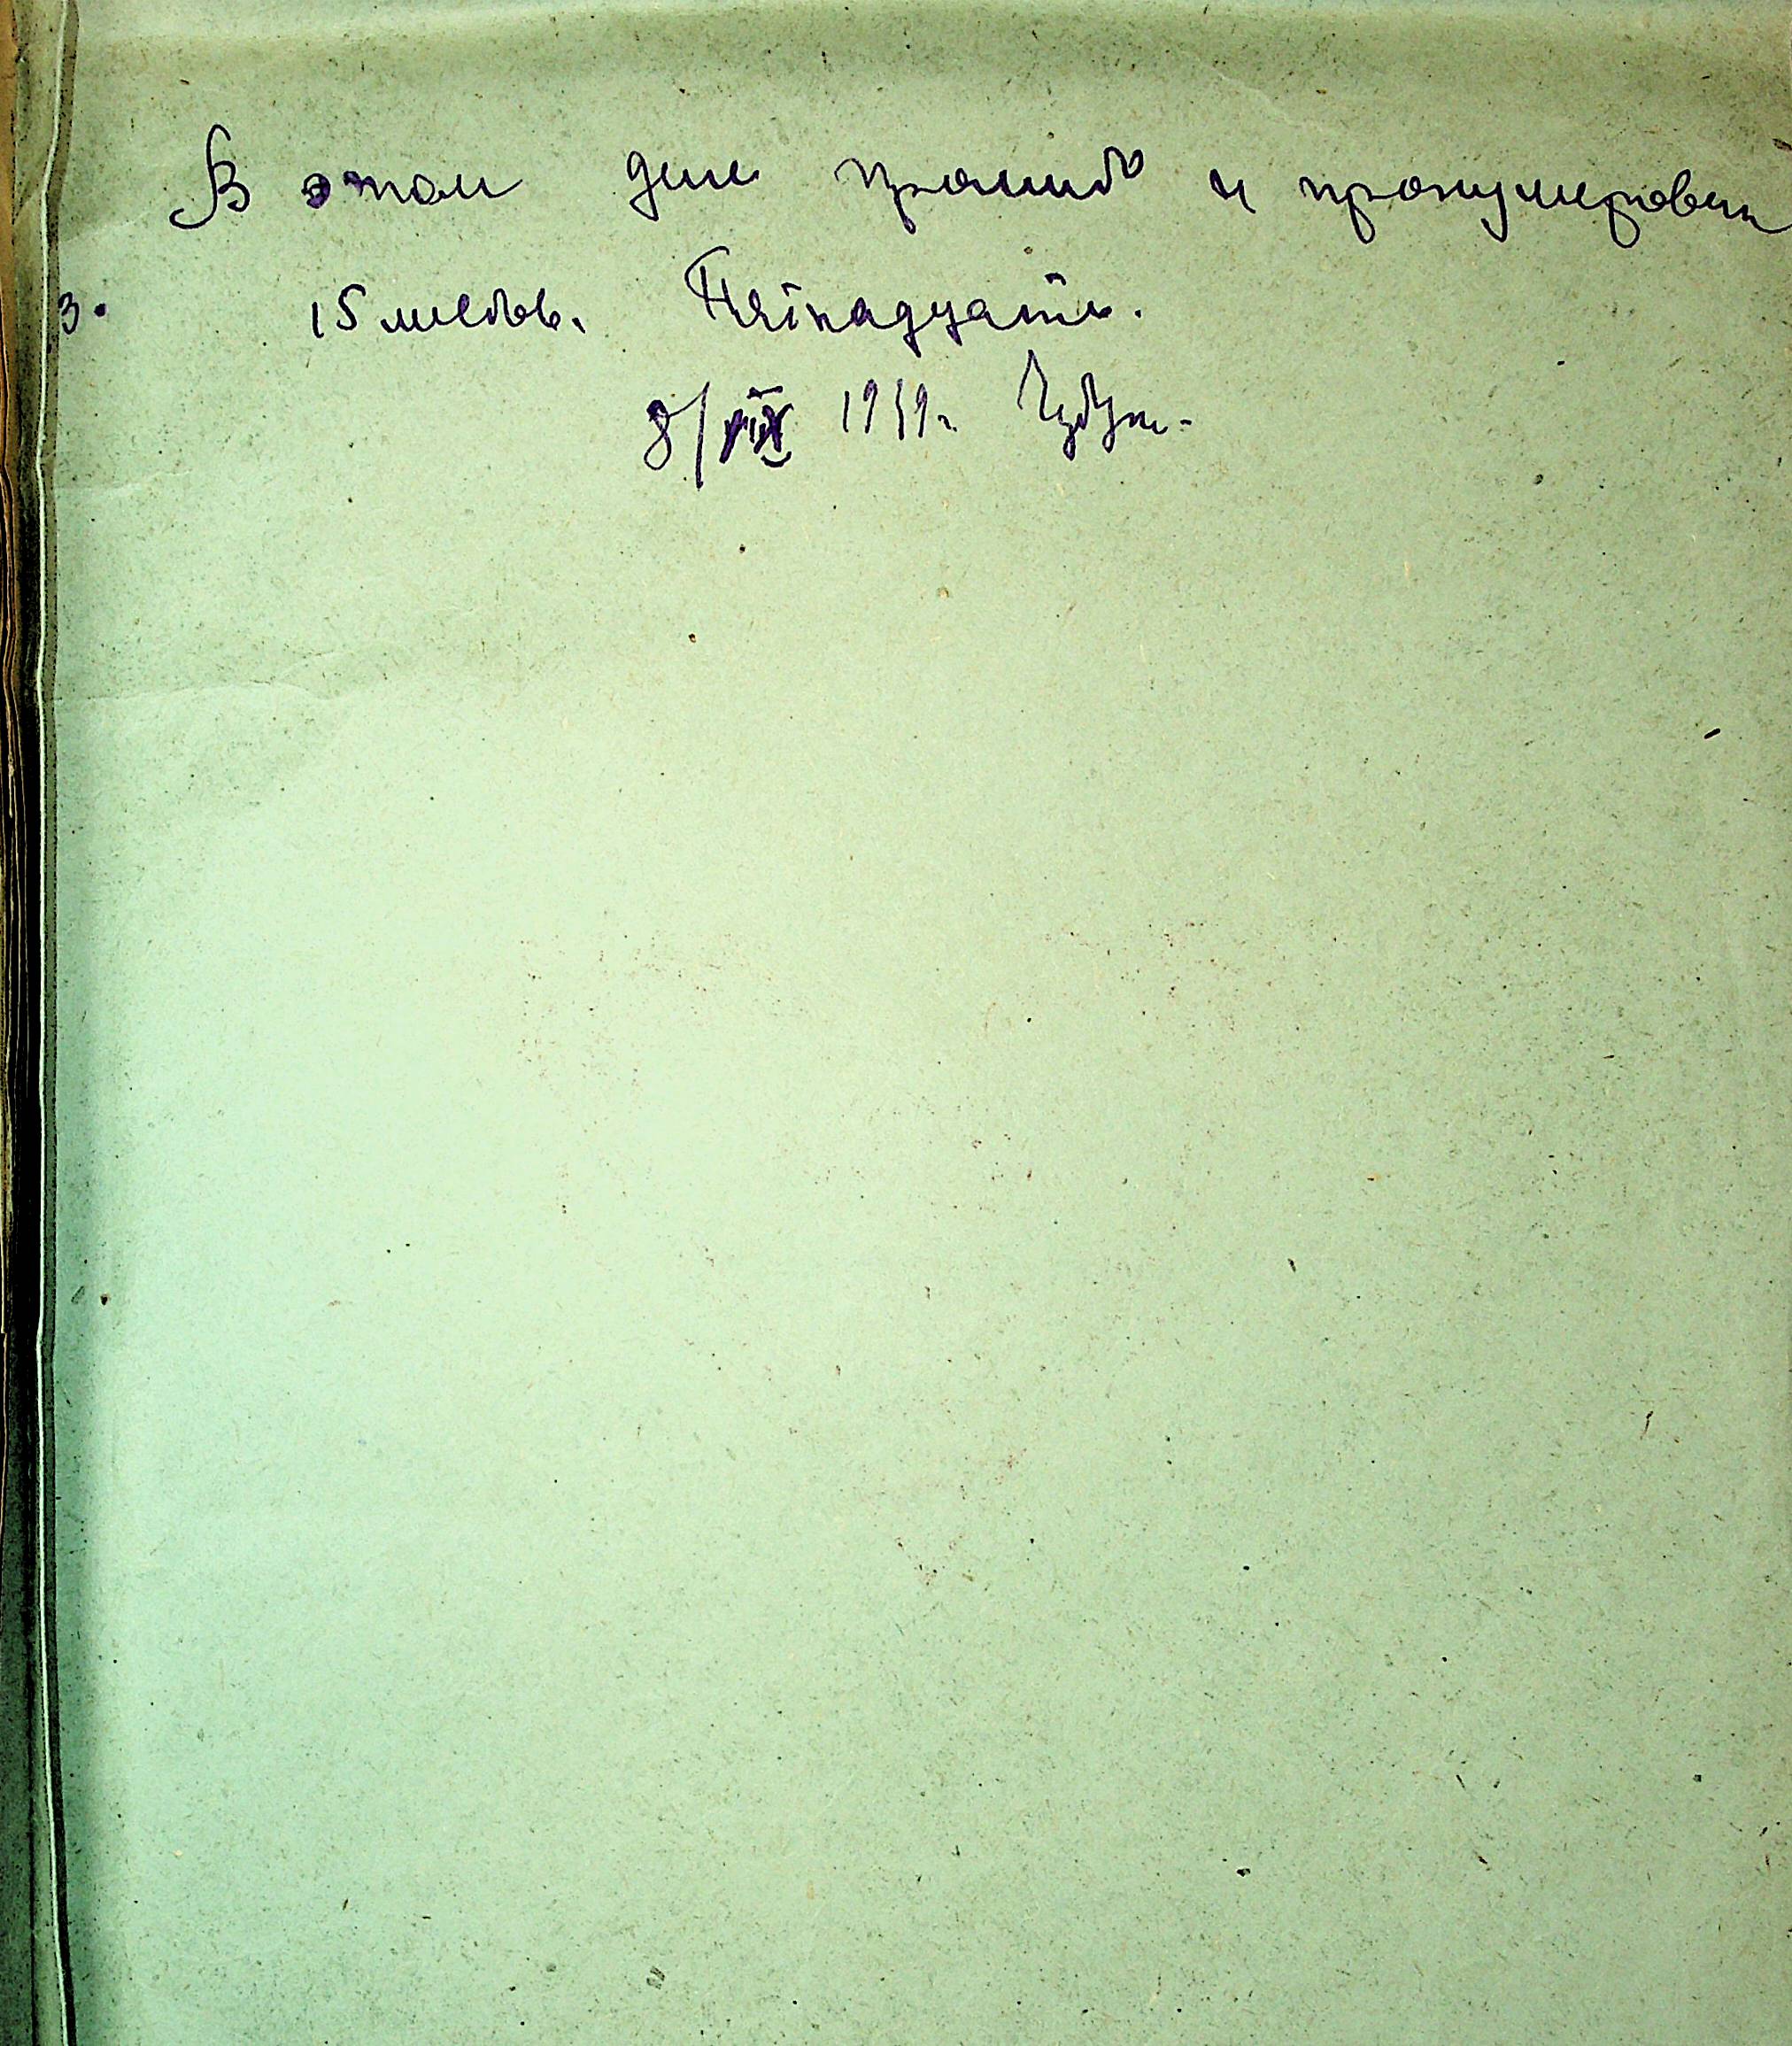 В этом деле прошито и пронумерован
3. 15 листов. Пятнадцать.
8/ 19 г.